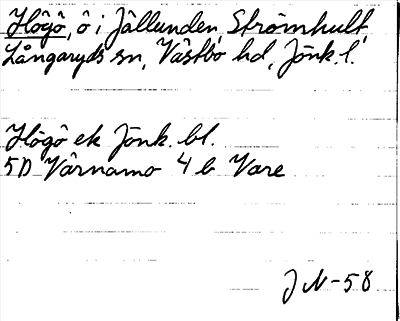 Högö, ö i Jällunden, Strömhult,
Långaryds sn, Västbo hd, Jönk. l.
Högö ek Jönk. bl.
5D Värnamo 4 b Vare
JN-58